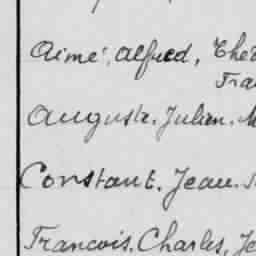 Aimé, Alfred,
Auguste. Julien.
Constant. Jean.
Francois. Charles,